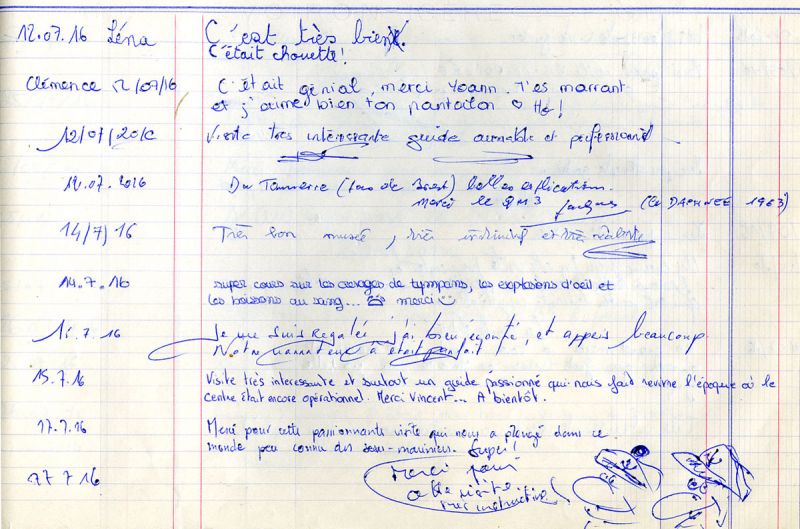 12.07.16 Léna C'est très bien.
C'était chouette!
Clémence 12/07/16 C'était génial, merci Yoann. T'es marrant
et j'aime bien ton pantalon ♡ Hé!
12/07/2016 Visite très intéressante guide aimable et professionnel
12.07.2016 Du Tonnerre (
) belles explications.
Merci le QM3 Jacques (Ex DAPHNEE 1963)
14/7/16 Très bon musée, très instructif et très
14.7.16 super cours sur les crevages de tympans, les explosions d'oeil et
les boissons au sang... merci
7.16 Je me suis Regalée, j'ai bien écouté, et appris beaucoup.
Notre narrateur a était parfait
15.7.16 Visite très interessante et surtout un guide passionné qui nous fait revivre l'époque où le
centre était encore opérationnel. Merci Vincent... A bientôt.
17.7.16 Merci pour cette passionnante visite qui nous a plongé dans ce
monde peu connu des sous-mariniers. Super!
27 7 16 Merci pour
cette visite
très instructive